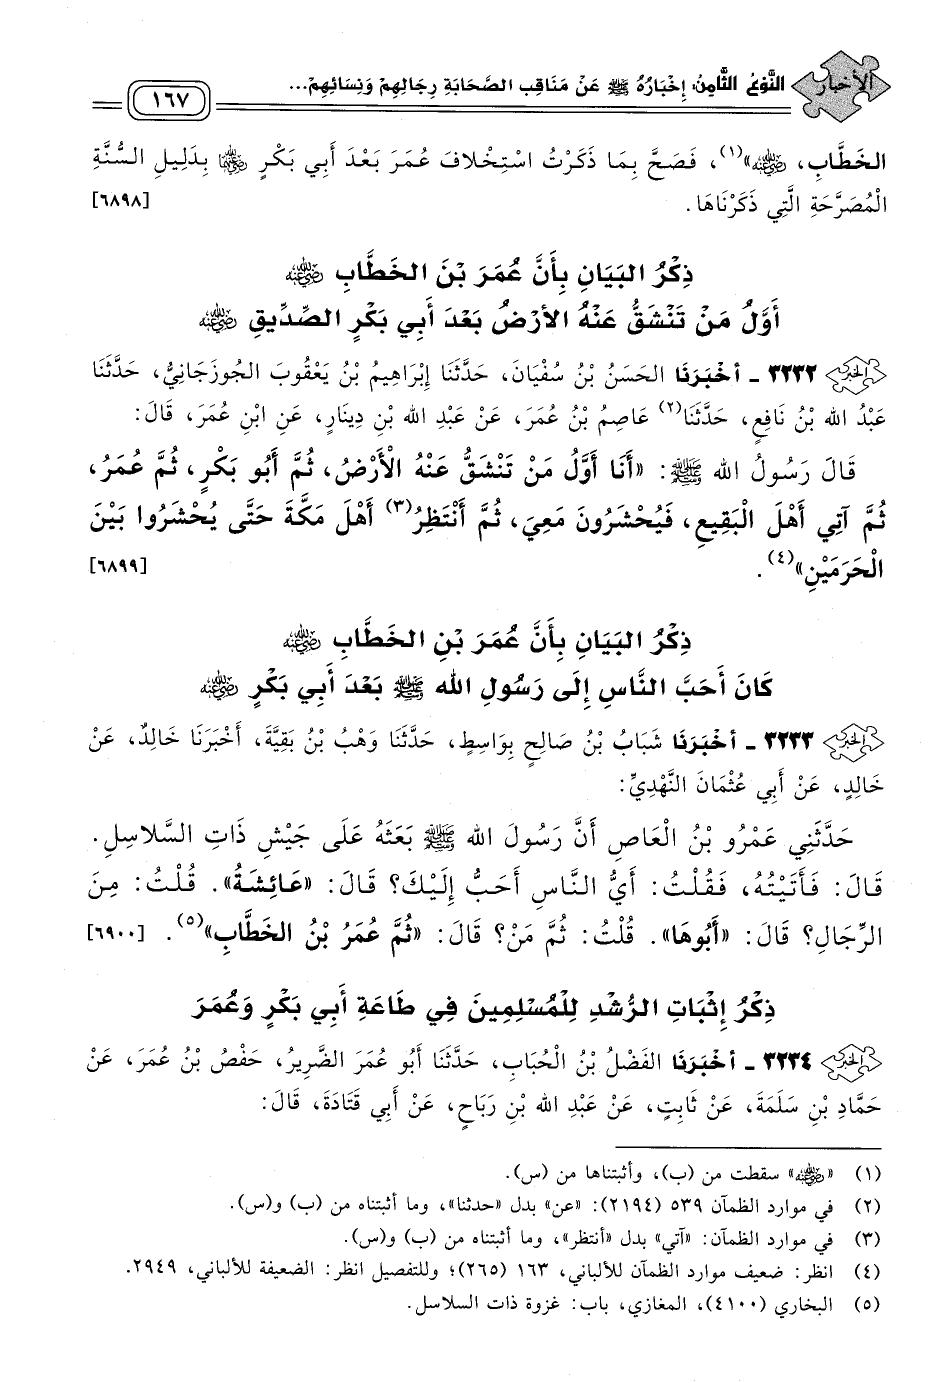 الأخبار النَّوْعُ الثَّامِنُ: إِخْبَارُهُ ﷺ عَنْ مَنَاقِبِ الصَّحَابَةِ رِجَالِهِمْ وَنِسَائِهِمْ... ١٦٧
الخَطَّابِ، رضي الله عنه»(١)، فَصَحَّ بِمَا ذَكَرْتُ اسْتِخْلَافَ عُمَرَ بَعْدَ أَبِي بَكْرٍ رضي الله عنهما بِدَلِيلِ السُّنَّةِ
الْمُصَرَّحَةِ الَّتِي ذَكَرْنَاهَا. [٦٨٩٨]
ذِكْرُ البَيَانِ بِأَنَّ عُمَرَ بْنَ الخَطَّابِ رضي الله عنه
أَوَّلُ مَنْ تَنْشَقُّ عَنْهُ الأَرْضُ بَعْدَ أَبِي بَكْرٍ الصِّدِّيقِ رضي الله عنه
الخبر ٣٢٣٢ ـ أَخْبَرَنَا الحَسَنُ بْنُ سُفْيَانَ، حَدَّثَنَا إِبْرَاهِيمُ بْنُ يَعْقُوبَ الجُوزجَانِيُّ، حَدَّثَنَا
عَبْدُ الله بْنُ نَافِعٍ، حَدَّثَنَا(٢) عَاصِمُ بْنُ عُمَرَ، عَنْ عَبْدِ الله بْنِ دِينَارٍ، عَنِ ابْنِ عُمَرَ، قَالَ:
قَالَ رَسُولُ الله ﷺ: «أَنَا أَوَّلُ مَنْ تَنْشَقُّ عَنْهُ الْأَرْضُ، ثُمَّ أَبُو بَكْرٍ، ثُمَّ عُمَرُ،
ثُمَّ آتِي أَهْلَ الْبَقِيعِ، فَيُحْشَرُونَ مَعِيَ، ثُمَّ أَنْتَظِرُ(٣) أَهْلَ مَكَّةَ حَتَّى يُحْشَرُوا بَيْنَ
الْحَرَمَيْنِ»(٤). [٦٨٩٩]
ذِكْرُ البَيَانِ بِأَنَّ عُمَرَ بْنِ الخَطَّابِ رضي الله عنه
كَانَ أَحَبَّ النَّاسِ إِلَى رَسُولِ الله ﷺ بَعْدَ أَبِي بَكْرٍ رضي الله عنه
الخبر ٣٢٣٣ ـ أَخْبَرَنَا شَبَابُ بْنُ صَالِحٍ بِوَاسِطٍ، حَدَّثَنَا وَهْبُ بْنُ بَقِيَّةَ، أَخْبَرَنَا خَالِدٌ، عَنْ
خَالِدٍ، عَنْ أَبِي عُثْمَانَ النَّهْدِيِّ:
حَدَّثَنِي عَمْرُو بْنُ الْعَاصِ أَنَّ رَسُولَ الله ﷺ بَعَثَهُ عَلَى جَيْشِ ذَاتِ السَّلَاسِلِ.
قَالَ: فَأَتَيْتُهُ، فَقُلْتُ: أَيُّ النَّاسِ أَحَبُّ إِلَيْكَ؟ قَالَ: «عَائِشَةُ». قُلْتُ: مِنَ
الرِّجَالِ؟ قَالَ: «أَبُوهَا». قُلْتُ: ثُمَّ مَنْ؟ قَالَ: «ثُمَّ عُمَرُ بْنُ الخَطَّابِ»(٥). [٦٩٠٠]
ذِكْرُ إِثْبَاتِ الرُّشْدِ لِلْمُسْلِمِينَ فِي طَاعَةِ أَبِي بَكْرٍ وَعُمَرَ
الخبر ٣٢٣٤ ـ أَخْبَرَنَا الفَضْلُ بْنُ الْحُبَابِ، حَدَّثَنَا أَبُو عُمَرَ الضَّرِيرُ، حَفْصُ بْنُ عُمَرَ، عَنْ
حَمَّادِ بْنِ سَلَمَةَ، عَنْ ثَابِتٍ، عَنْ عَبْدِ الله بْنِ رَبَاحٍ، عَنْ أَبِي قَتَادَةَ، قَالَ:
(١) «رضي الله عنه» سقطت من (ب)، وأثبتناها من (س).
(٢) في موارد الظمآن ٥٣٩ (٢١٩٤): «عن» بدل «حدثنا»، وما أثبتناه من (ب) و(س).
(٣) في موارد الظمآن: «آتي» بدل «أنتظر»، وما أثبتناه من (ب) و(س).
(٤) انظر: ضعيف موارد الظمآن للألباني، ١٦٣ (٢٦٥)؛ وللتفصيل انظر: الضعيفة للألباني، ٢٩٤٩.
(٥) البخاري (٤١٠٠)، المغازي، باب: غزوة ذات السلاسل.